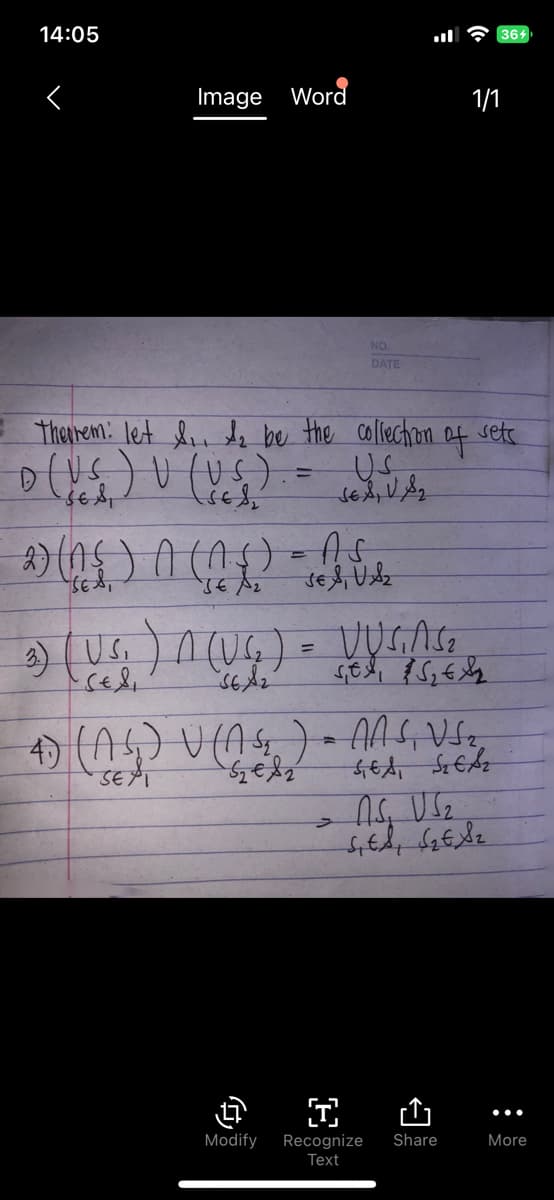 14:05
36
Image Word 1/1
NO.
DATE
Theorem: let 𝒮₁, 𝒮₂ be the collection of sets
1) (∪S) ∪ (∪S) = ∪S
S∈𝒮₁ S∈𝒮₂ S∈𝒮₁∪𝒮₂
2) (∩S) ∩ (∩S) = ∩S
S∈𝒮₁ S∈𝒮₂ S∈𝒮₁∪𝒮₂
3) (∪S₁) ∩ (∪S₂) = ∪∪S₁∩S₂
S∈𝒮₁ S∈𝒮₂ S₁∈𝒮₁ S₂∈𝒮₂
4.) (∩S₁) ∪ (∩S₂) = ∩∩S₁∪S₂
S∈𝒮₁ S₂∈𝒮₂ S₁∈𝒮₁ S₂∈𝒮₂
= ∩S₁∪S₂
S₁∈𝒮₁, S₂∈𝒮₂
Modify Recognize Share More
Text